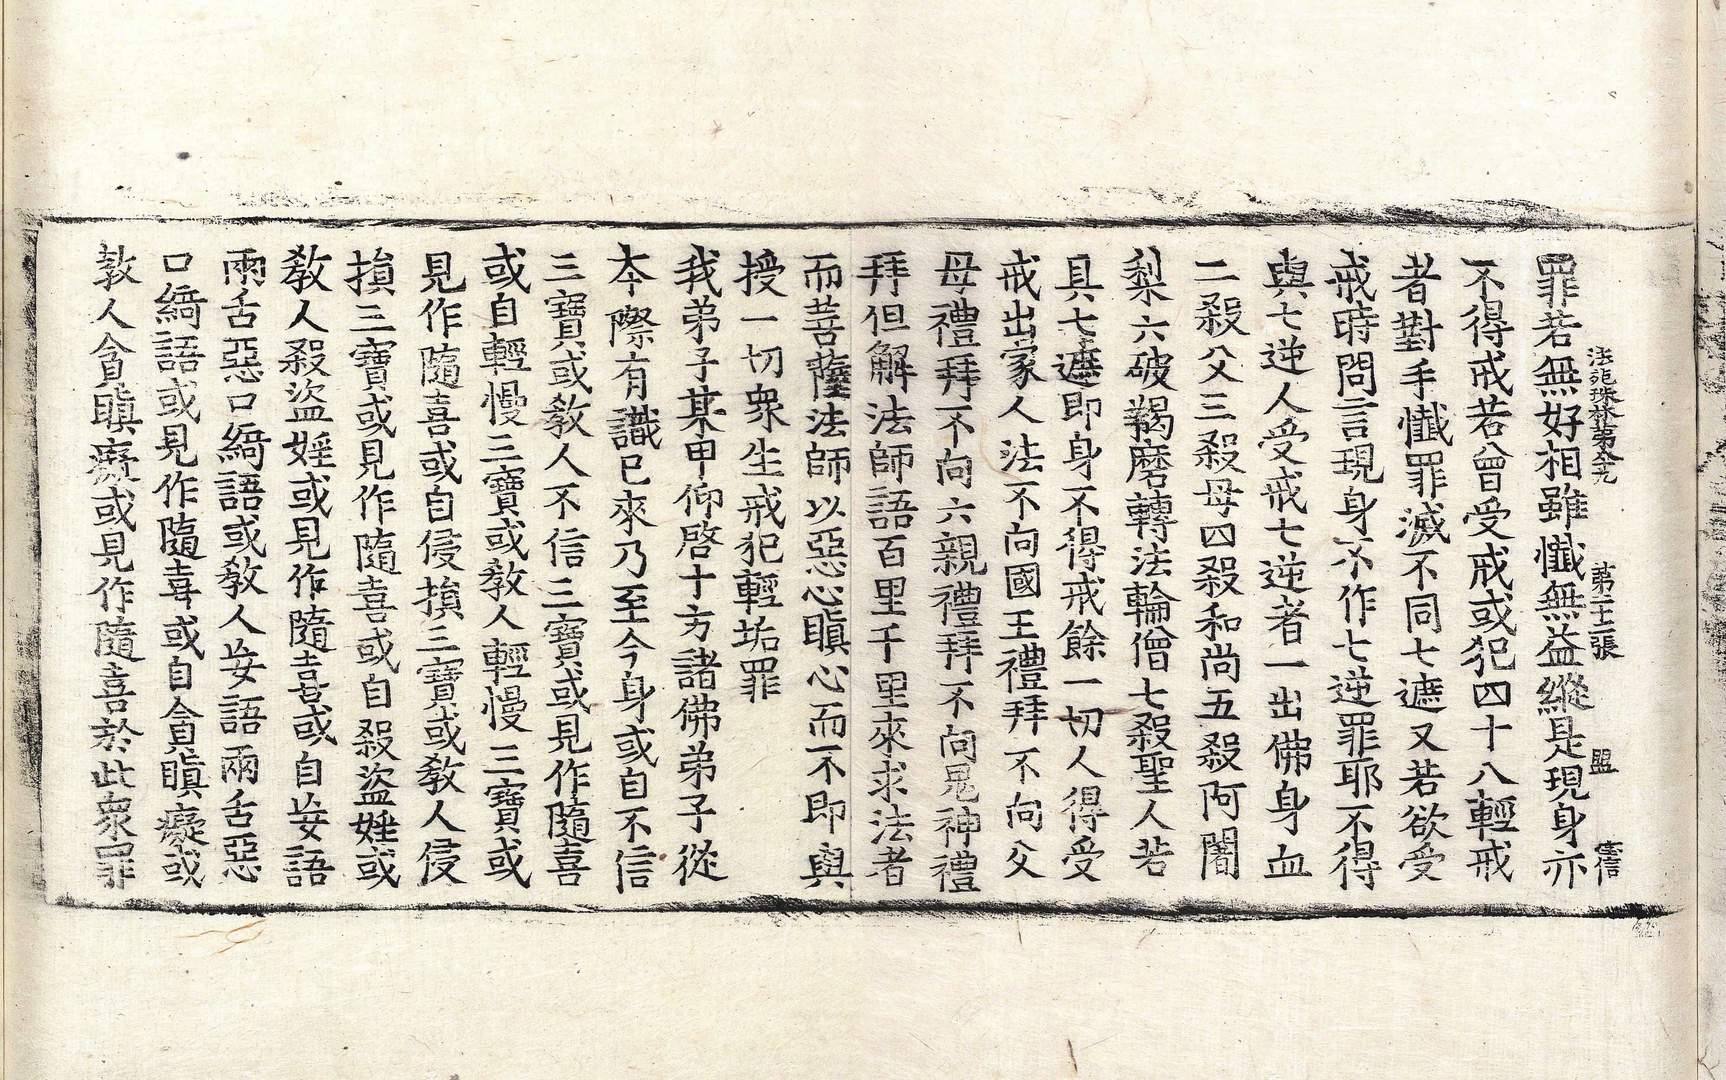 法苑珠林第八十九 第二十三張 盟
罪若無好相雖懺無益縱是現身亦
不得戒若曾受戒或犯四十八輕戒
者對手懺罪滅不同七遮又若欲受
戒時問言現身不作七逆罪耶不得
與七逆人受戒七逆者一出佛身血
二殺父三殺母四殺和尚五殺阿闍
梨六破羯磨轉法輪僧七殺聖人若
具七遮即身不得戒餘一切人得受
戒出家人法不向國王禮拜不向父
母禮拜不向六親禮拜不向鬼神禮
拜但解法師語百里千里來求法者
而菩薩法師以惡心瞋心而不即與
授一切衆生戒犯輕垢罪
我弟子某甲仰啓十方諸佛弟子從
本際有識已來乃至今身或自不信
三寶或教人不信三寶或見作隨喜
或自輕慢三寶或教人輕慢三寶或
見作隨喜或自侵損三寶或教人侵
損三寶或見作隨喜或自殺盜婬或
教人殺盜婬或見作隨喜或自妄語
兩舌惡口綺語或教人妄語兩舌惡
口綺語或見作隨喜或自貪瞋癡或
教人貪瞋癡或見作隨喜於此衆罪